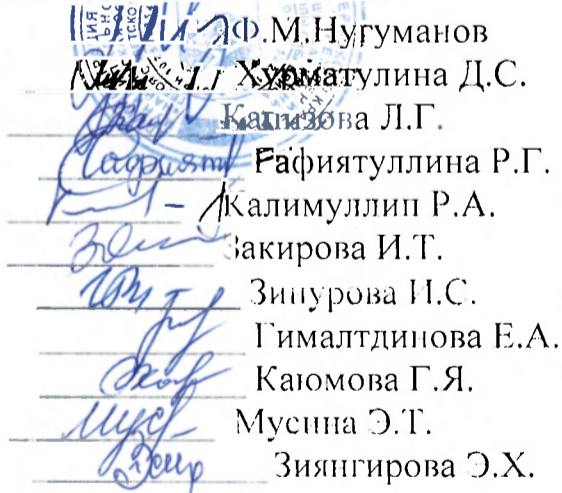 Ф.М.Нугуманов
Хурматулина Д.С.
Капизова Л.Г.
Гафиятуллина Р.Г.
Калимуллин Р.А.
Закирова И.Т.
Зинурова И.С.
Гималтдинова Е.А.
Каюмова Г.Я.
Мусина Э.Т.
Зиянгирова Э.Х.